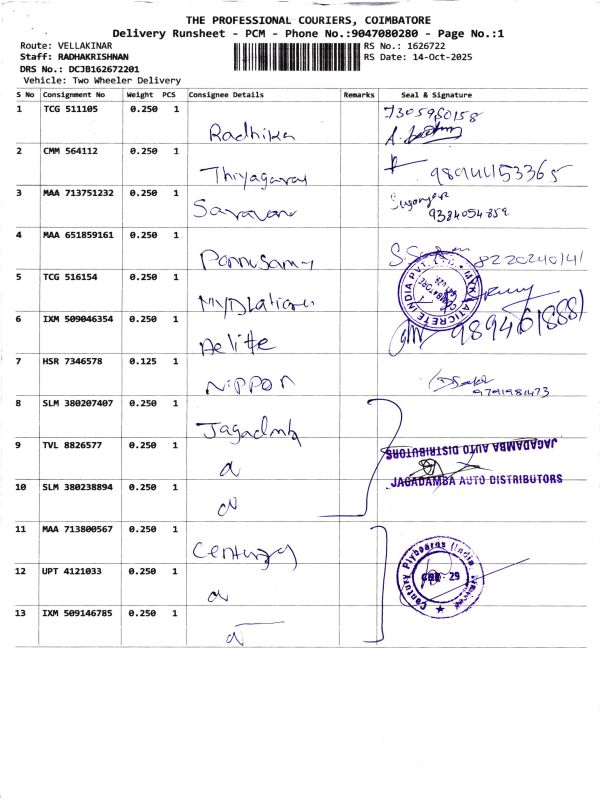 THE PROFESSIONAL COURIERS, COIMBATORE
Delivery Runsheet - PCM - Phone No.:9047080280 - Page No.:1
Route: VELLAKINAR
RS No.: 1626722
Staff: RADHAKRISHNAN
RS Date: 14-Oct-2025
DRS No.: DCJB162672201
Vehicle: Two Wheeler Delivery
S No Consignment No Weight PCS Consignee Details Remarks Seal & Signature
1 TCG 511105 0.250 1 Radhika 7305960158
2 CMM 564112 0.250 1 Thiyagaraj
3 MAA 713751232 0.250 1 Saravan 9384054859
4 MAA 651859161 0.250 1 Ponnusamy 8220240141
5 TCG 516154 0.250 1
MYK LATICRETE INDIA PVT. LTD.
COIMBATORE
6 IXM 509046354 0.250 1 Aelite
7 HSR 7346578 0.125 1 NIPPON 9791981473
8 SLM 380207407 0.250 1 Jagadmb
9 TVL 8826577 0.250 1
JAGADAMBA AUTO DISTRIBUTORS
10 SLM 380238894 0.250 1
JAGADAMBA AUTO DISTRIBUTORS
11 MAA 713800567 0.250 1 Century
12 UPT 4121033 0.250 1
Century Plyboards (India) Limited
CBE - 29
13 IXM 509146785 0.250 1